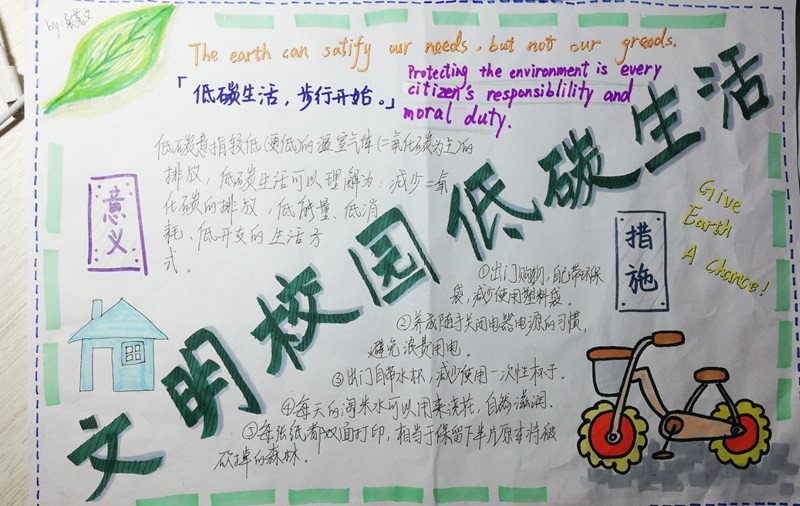 The earth can satify our needs, but not our greeds.
「低碳生活，步行开始。」
Protecting the environment is every
citizen's responsiblility and
moral duty.
低碳意指较低(更低)的温室气体(二氧化碳为主)的
排放，低碳生活可以理解为：减少二氧
化碳的排放，低能量、低消
耗、低开支的生活方
式。
意义
文明校园低碳生活
Give
Earth
A Chance!
措施
①出门购物，自己带环保
袋，减少使用塑料袋。
②养成随手关闭电器电源的习惯，
避免浪费用电。
③出门自带水杯，减少使用一次性杯子。
④每天的淘米水可以用来浇花，自然滋润。
⑤每张纸都双面打印，相当于保留下半片原本将被
砍掉的森林。